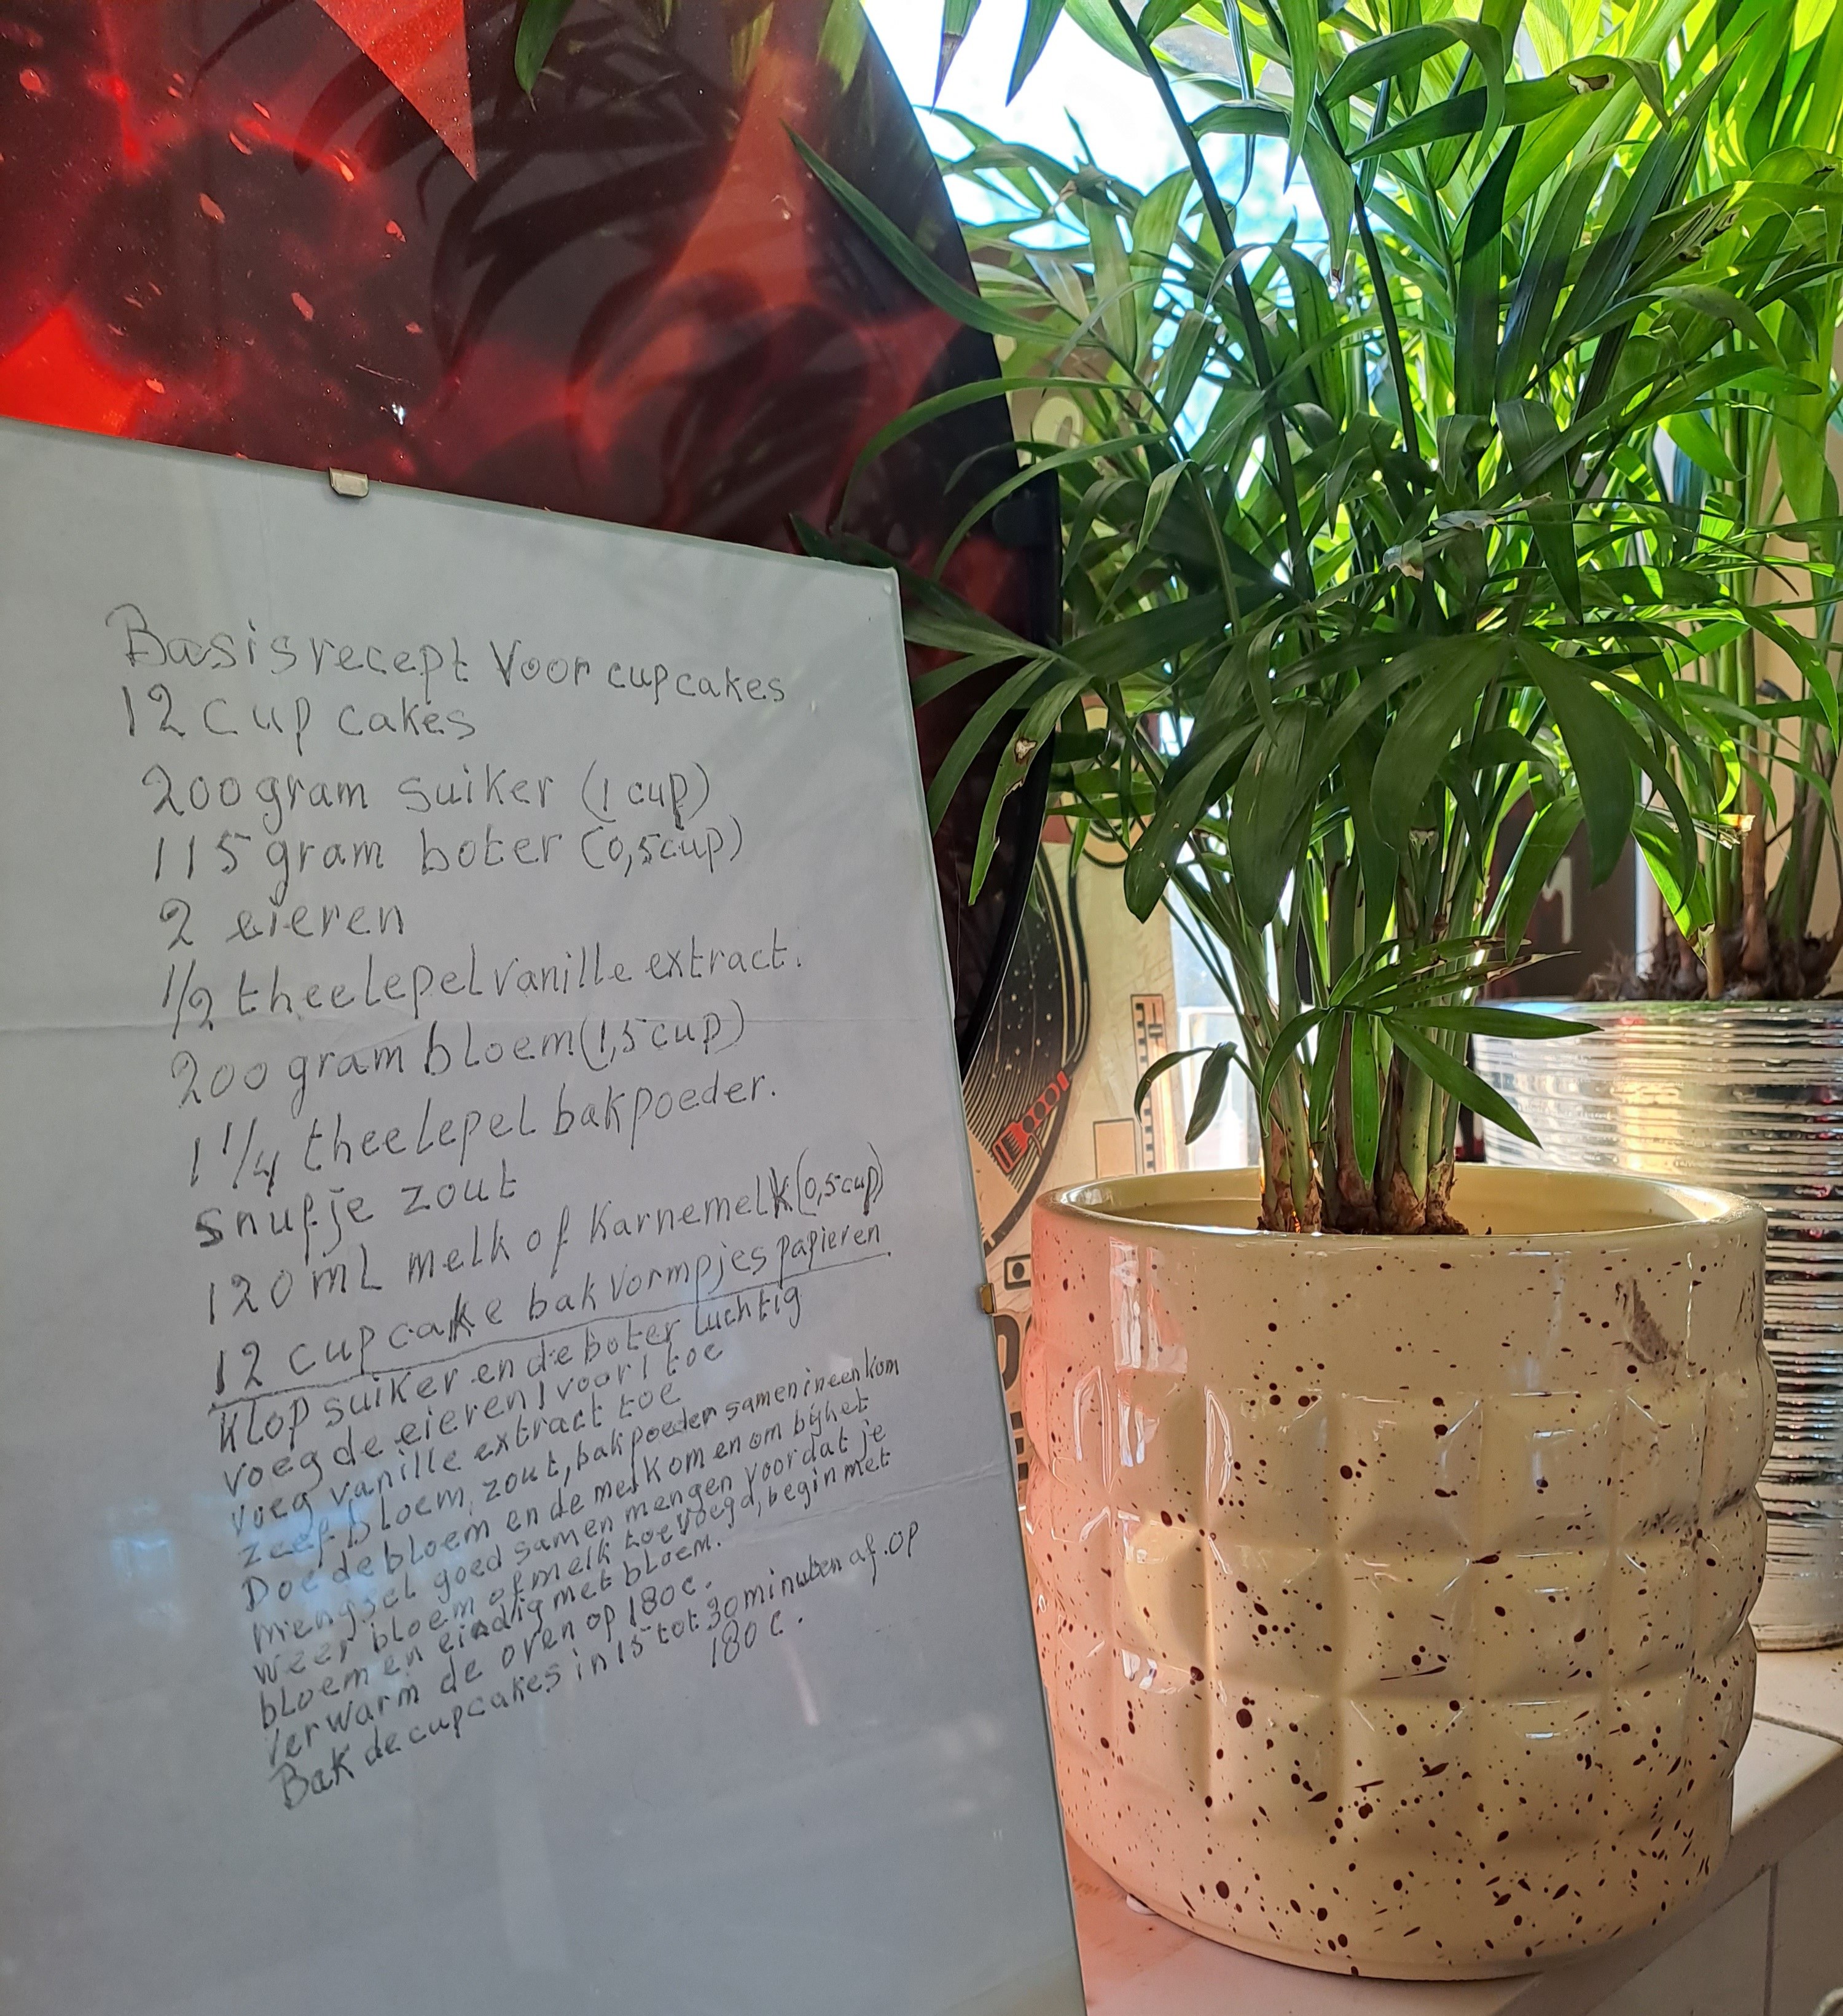 Basisrecept Voor cupcakes
12 cup cakes
200 gram suiker (1 cup)
115 gram boter (0,5 cup)
2 eieren
1/2 theelepel vanille extract.
200 gram bloem (1,5 cup)
1 1/4 theelepel bakpoeder.
snufje zout
120 mL melk of karnemelk (0,5 cup)
12 cup cake bak vormpjes papieren.
klop suiker en de boter luchtig
voeg de eieren 1 voor 1 toe
voeg vanille extract toe
zeef bloem, zout, bakpoeder samen in een kom
Doe de bloem en de melk om en om bij het
mengsel goed samen mengen voordat je
weer bloem of melk toevoegd, begin met
bloem en eindig met bloem.
Verwarm de oven op 180 c.
Bak de cupcakes in 15 tot 20 minuten af. op
180 c.